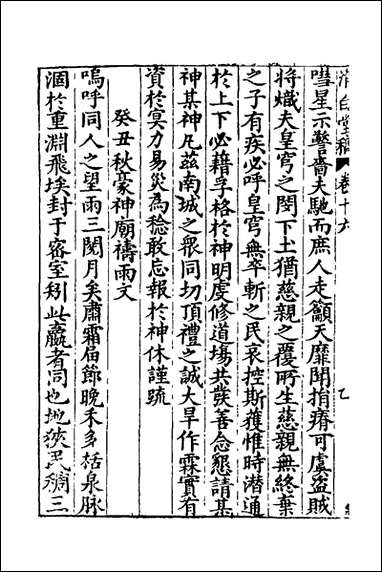 清白堂稿 卷十六
嘒星示警嗇夫馳而庶人走籲天靡聞捐瘠可虞盗賊
將熾夫皇穹之閔下土猶慈親之覆所生慈親無終棄
之子有疾必呼皇穹無卒斬之民哀控斯獲惟時潜通
於上下必藉孚格於神明虔修道場共發善念懇請某
神某神凡茲南城之衆同切頂禮之誠大旱作霖實有
資於冥力易災為稔敢忘報於神休謹疏
癸丑秋豪神廟禱雨文
嗚呼同人之望雨三閱月矣肅霜届節晩禾多枯泉脉
涸於重淵飛埃封于宻室矧此羸者同也地狹民稠三